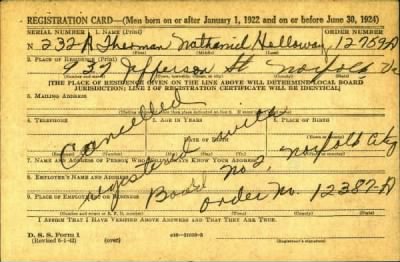 REGISTRATION CARD—(Men born on or after January 1, 1922 and on or before June 30, 1924)
SERIAL NUMBER 1. NAME (Print) ORDER NUMBER
N 232-A Therman Nathaniel Holloway 12759A
2. PLACE OF RESIDENCE (Print)
932 Jefferson St Norfolk Va
[THE PLACE OF RESIDENCE GIVEN ON THE LINE ABOVE WILL DETERMINE LOCAL BOARD
JURISDICTION; LINE 2 OF REGISTRATION CERTIFICATE WILL BE IDENTICAL]
3. MAILING ADDRESS
Cancelled
4. TELEPHONE 5. AGE IN YEARS 6. PLACE OF BIRTH
DATE OF BIRTH
registered with
7. NAME AND ADDRESS OF PERSON WHO WILL ALWAYS KNOW YOUR ADDRESS
Board No 2, Norfolk City
8. EMPLOYER'S NAME AND ADDRESS
order No. 12387-A
9. PLACE OF EMPLOYMENT OR BUSINESS
I AFFIRM THAT I HAVE VERIFIED ABOVE ANSWERS AND THAT THEY ARE TRUE.
D. S. S. Form 1
(Revised 6-1-42) (over) (Registrant's signature)